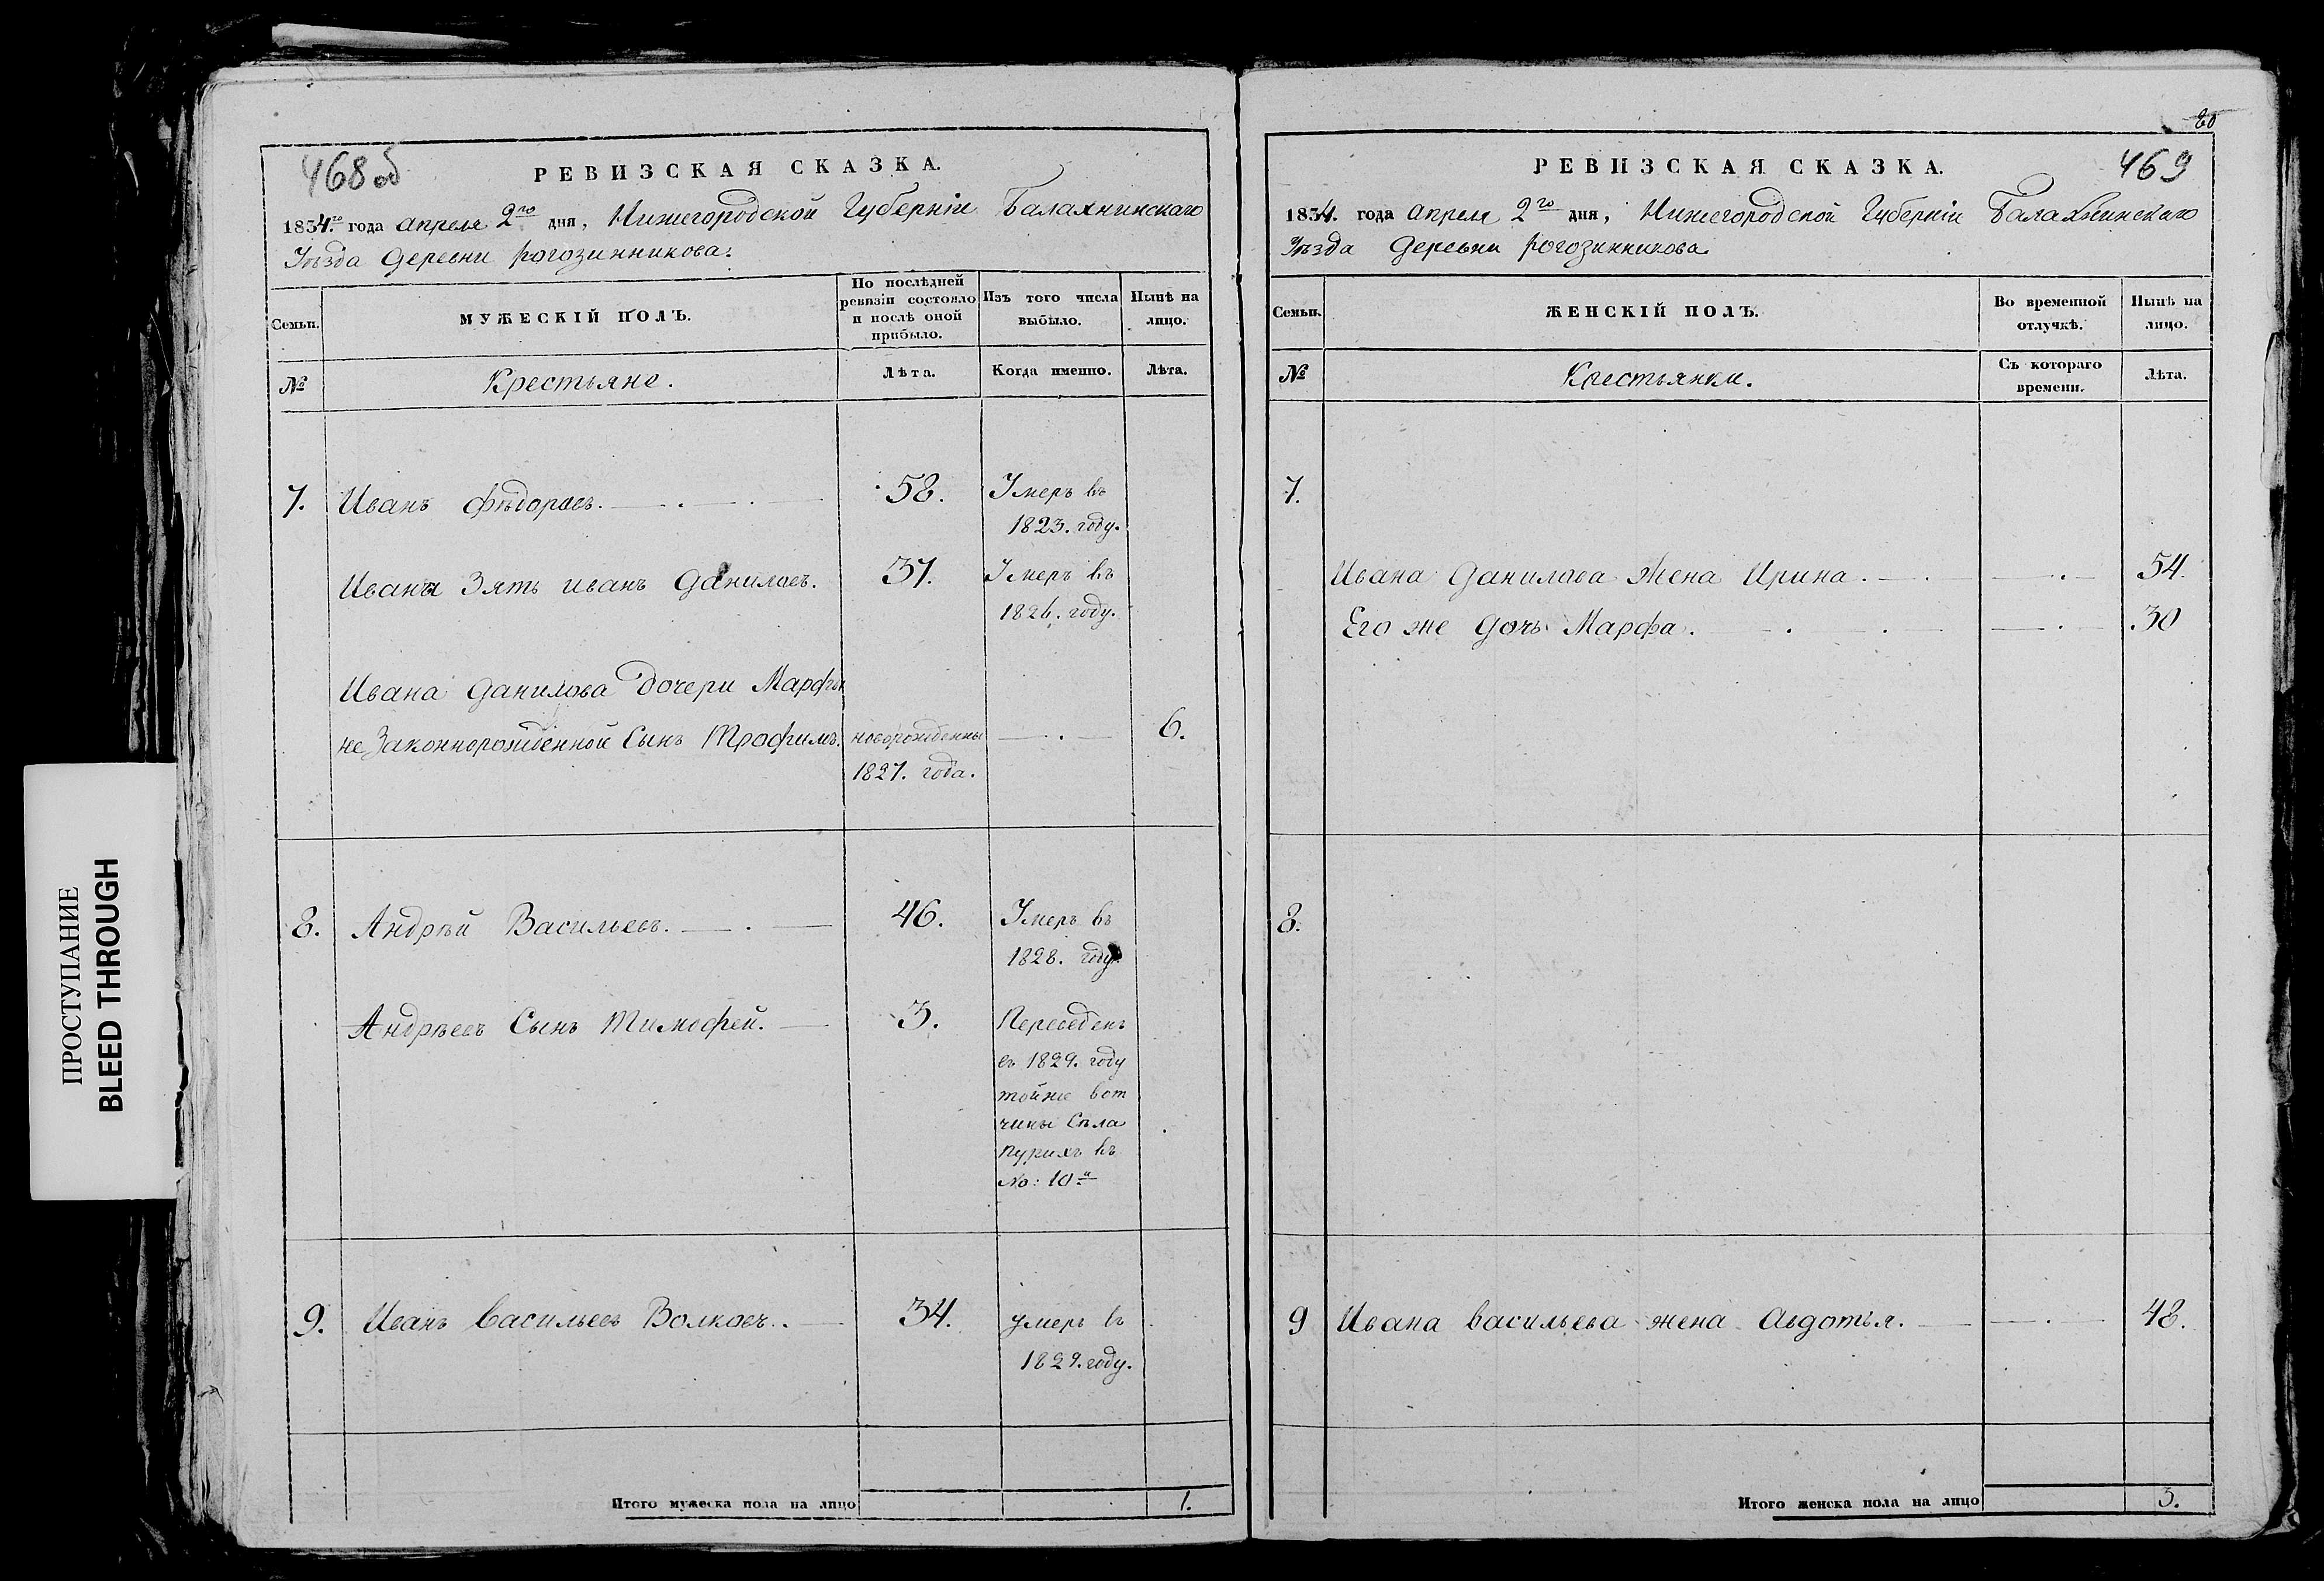 ПРОСТУПАНИЕ
BLEED THROUGH
468 об
РЕВИЗСКАЯ СКАЗКА.
1834.го года апреля 2го дня, Нижегородской Губерніи Балахнинскаго
Уѣзда деревни рогозинникова.
Семьи.
МУЖЕСКІЙ ПОЛЪ.
По послѣдней ревизіи состояло и послѣ оной прибыло.
Изъ того числа выбыло.
Нынѣ на лицо.
№
Крестьяне.
Лѣта.
Когда именно.
Лѣта.
7. Иванъ Фѣдоровъ. 58. Умеръ въ
1823. году.
Ивана Зять иванъ даниловъ. 37. Умеръ въ
1826. году.
Ивана данилова дочери Марфы
не Законнорожденной Сынъ Трофимъ. новорожденны 6.
1827. года.
8. Андрѣй Васильевъ. 46. Умеръ въ
1828. году.
Андрѣевъ Сынъ Тимофей. 3. Переведенъ
въ 1829. году
тойже вот
чины Села
Пурихъ въ
No: 10й
9. Иванъ Васильевъ Волковъ. 34. умеръ въ
1829. году.
Итого мужеска пола на лицо 1.
80
469
РЕВИЗСКАЯ СКАЗКА.
1834. года апреля 2го дня, Нижегородской Губерніи Балахнинскаго
Уѣзда деревни рогозинникова.
Семьи.
ЖЕНСКІЙ ПОЛЪ.
Во временной отлучкѣ.
Нынѣ на лицо.
№
Крестьянки.
Съ котораго времени.
Лѣта.
7.
Ивана данилова жена Ирина. 54.
Его же дочь Марфа. 30
8.
9 Ивана васильева жена Авдотья. 48.
Итого женска пола на лицо 3.